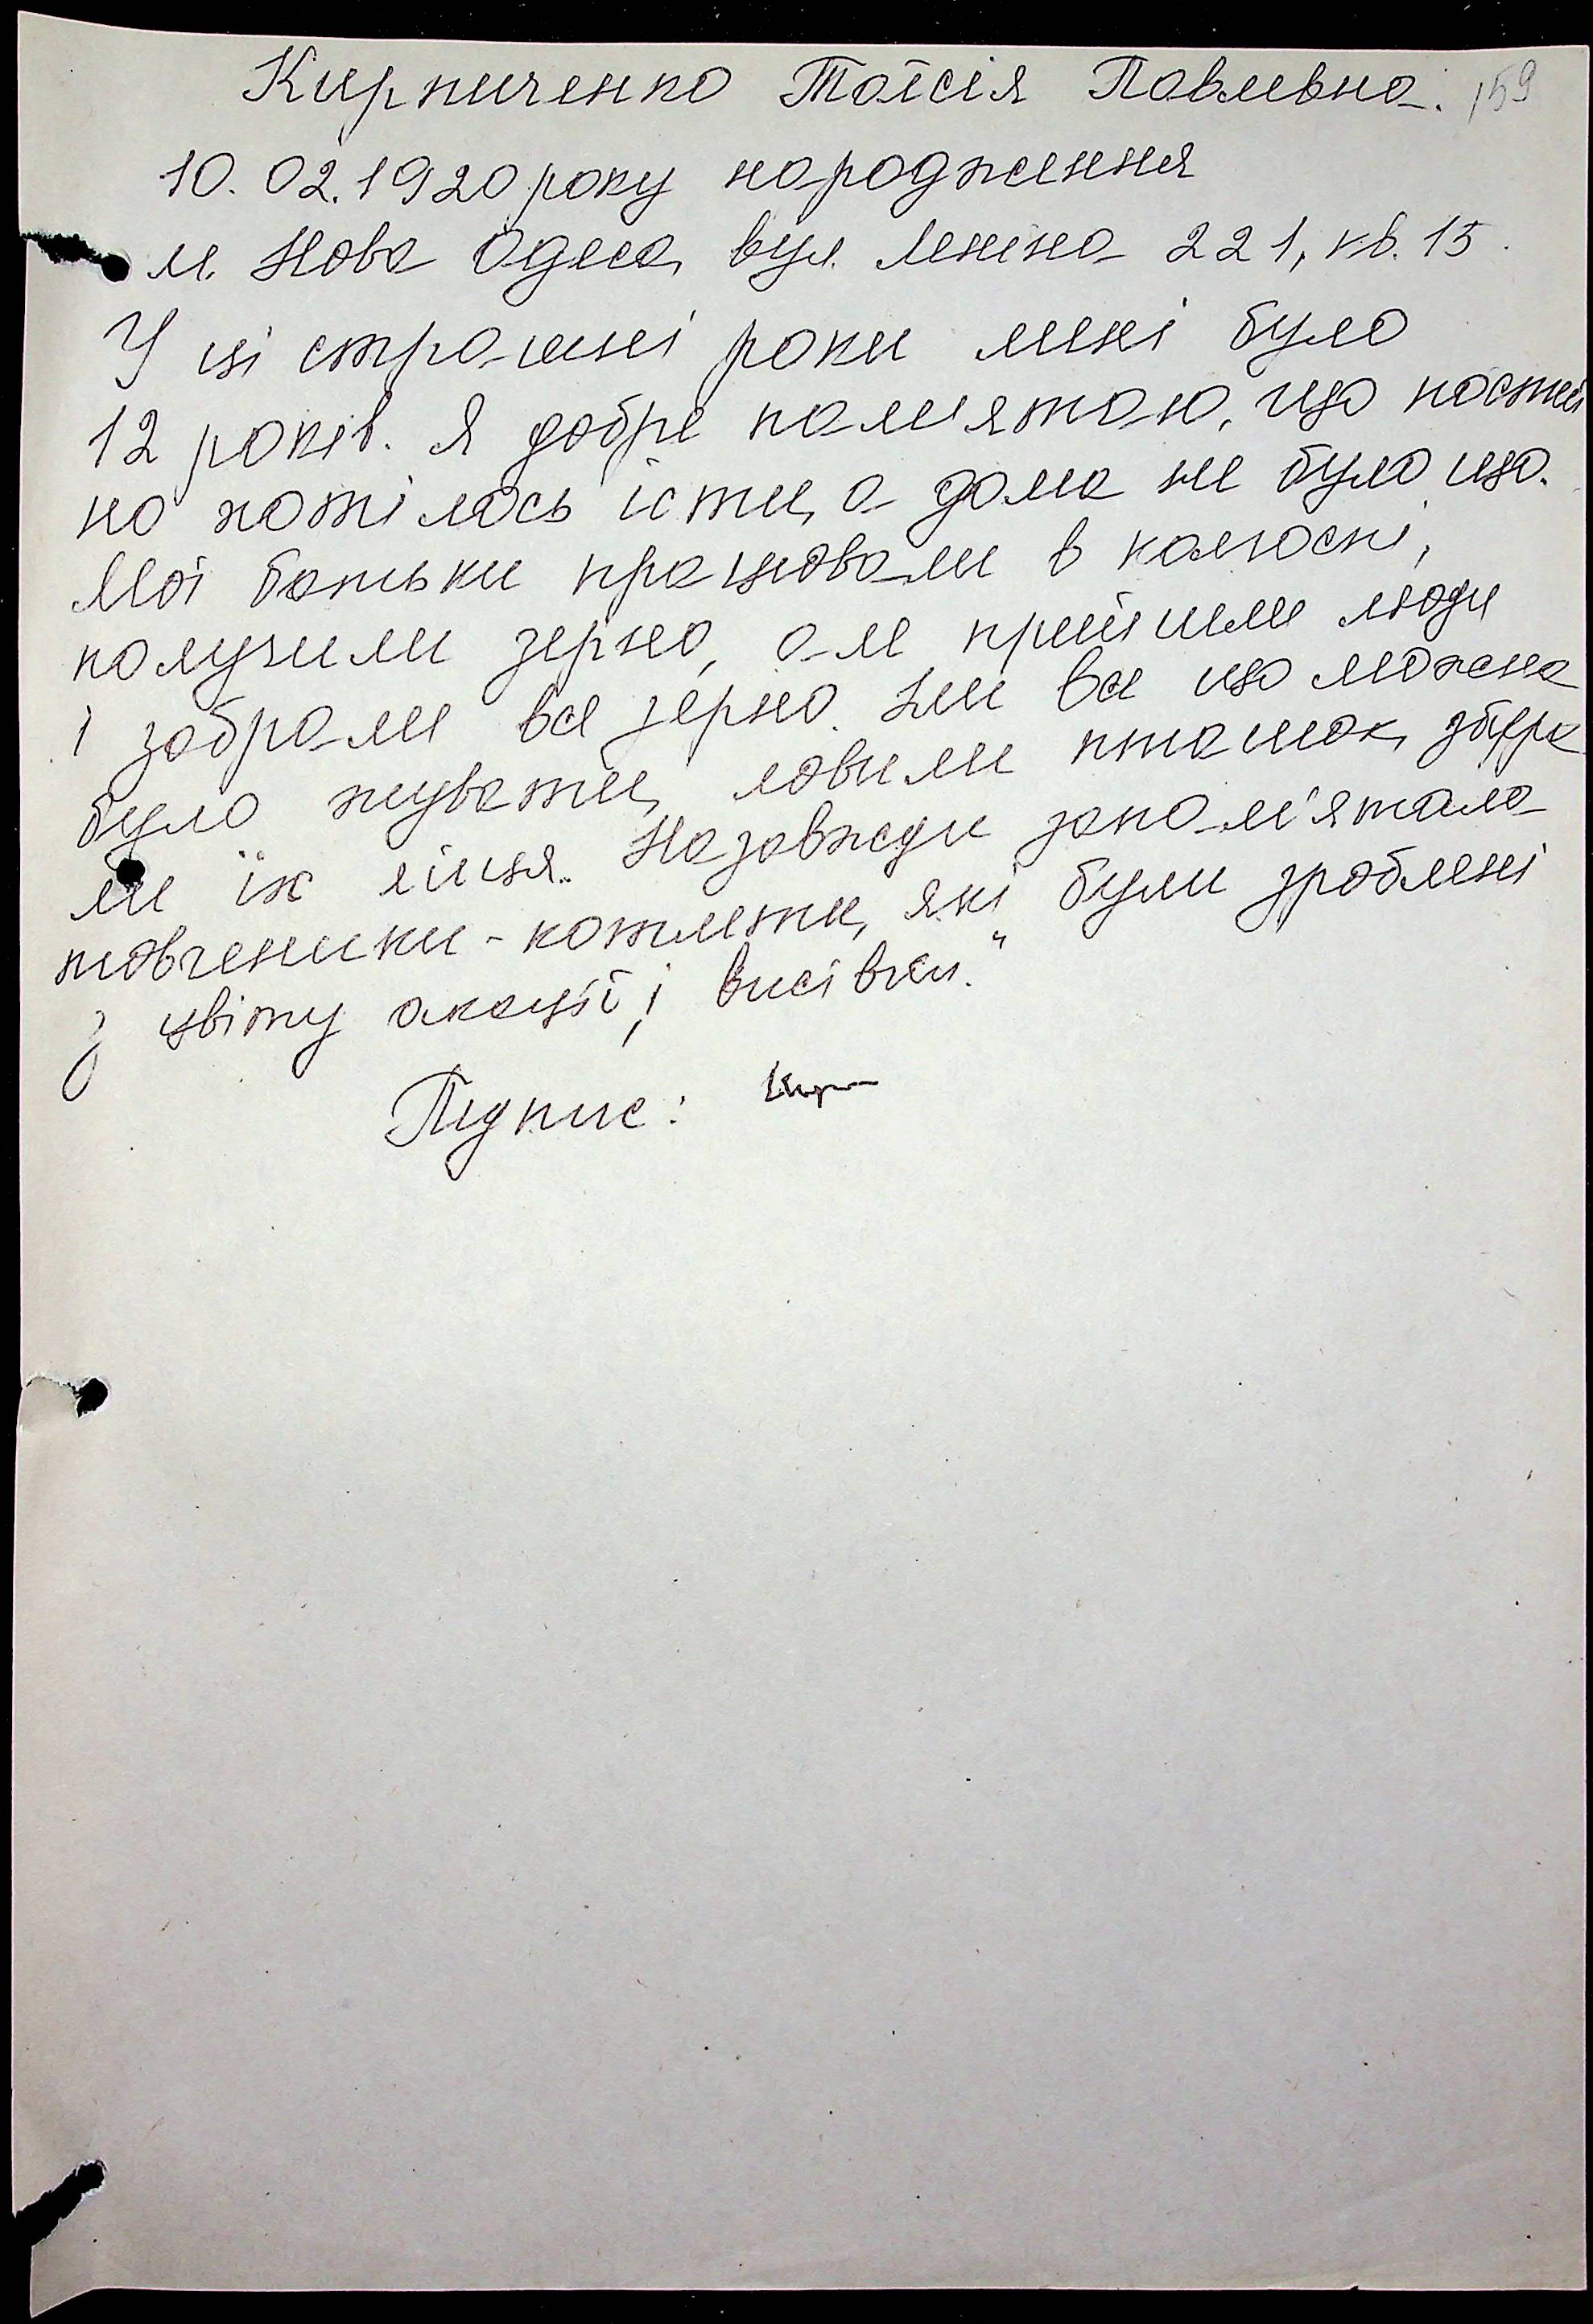 Кирпиченко Таїсія Павлівна. 159
10.02.1920 року народження
м. Нова Одеса, вул. Леніна 221, кв. 15.
У ці страшні роки мені було
12 років. Я добре пам'ятаю, що постій
но хотілось їсти, а дома не було що.
Мої батьки працювали в колгоспі,
получили зерно, але прийшли люди
і забрали все зерно. Їли все що можна
було жувати, ловили пташок, збира
ли їх яйця. Назавжди запам'ятала
товченики-котлети, які були зроблені
з цвіту акації і висівки."
Підпис: